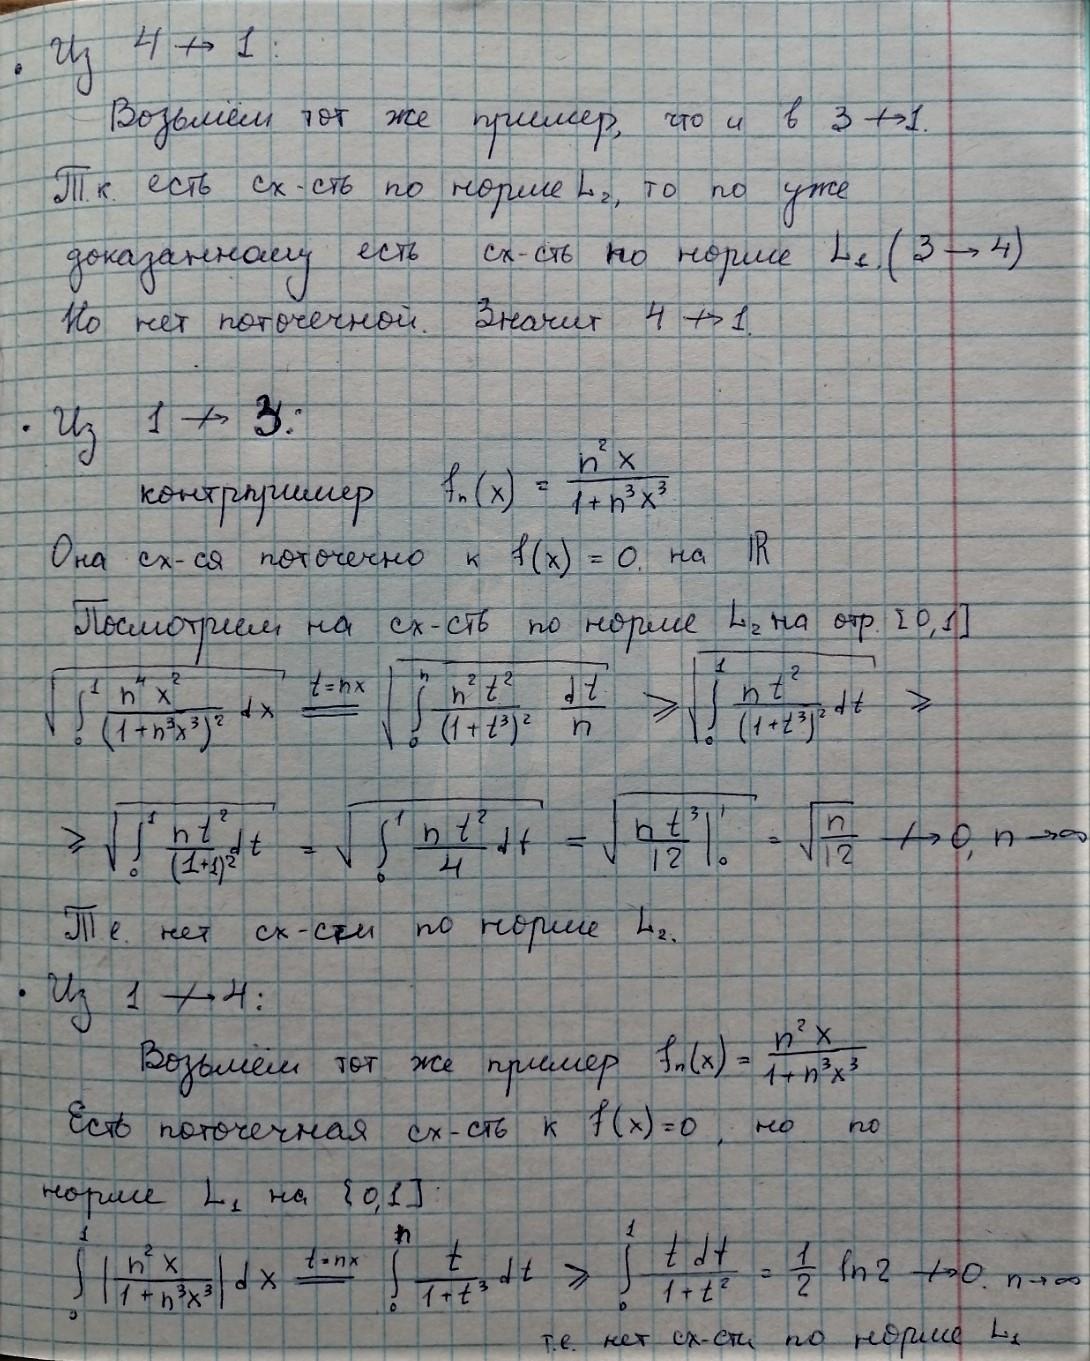 • Из 4 ↛ 1:
Возьмём тот же пример, что и в 3 ↛ 1.
Т.к. есть сх-сть по норме L₂, то по уже
доказанному есть сх-сть по норме L₁. (3 → 4)
Но нет поточечной. Значит 4 ↛ 1.
• Из 1 ↛ 3:
контрпример fₙ(x) = n²x / (1+n³x³)
Она сх-ся поточечно к f(x) = 0. на ℝ
Посмотрим на сх-сть по норме L₂ на отр. [0,1]
√(∫₀¹ n⁴x²/(1+n³x³)² dx) =(t=nx)= √(∫₀ⁿ n²t²/(1+t³)² dt/n) ⩾ √(∫₀¹ nt²/(1+t³)² dt) ⩾
⩾ √(∫₀¹ nt²/(1+1)² dt) = √(∫₀¹ nt²/4 dt) = √(nt³/12 |₀¹) = √(n/12) ↛ 0, n → ∞
Т.е. нет сх-сти по норме L₂.
• Из 1 ↛ 4:
Возьмём тот же пример fₙ(x) = n²x / (1+n³x³)
Есть поточечная сх-сть к f(x)=0, но по
норме L₁ на [0,1]:
∫₀¹ |n²x/(1+n³x³)| dx =(t=nx)= ∫₀ⁿ t/(1+t³) dt ⩾ ∫₀¹ t dt/(1+t²) = 1/2 ln 2 ↛ 0. n → ∞
т.е. нет сх-сти по норме L₁